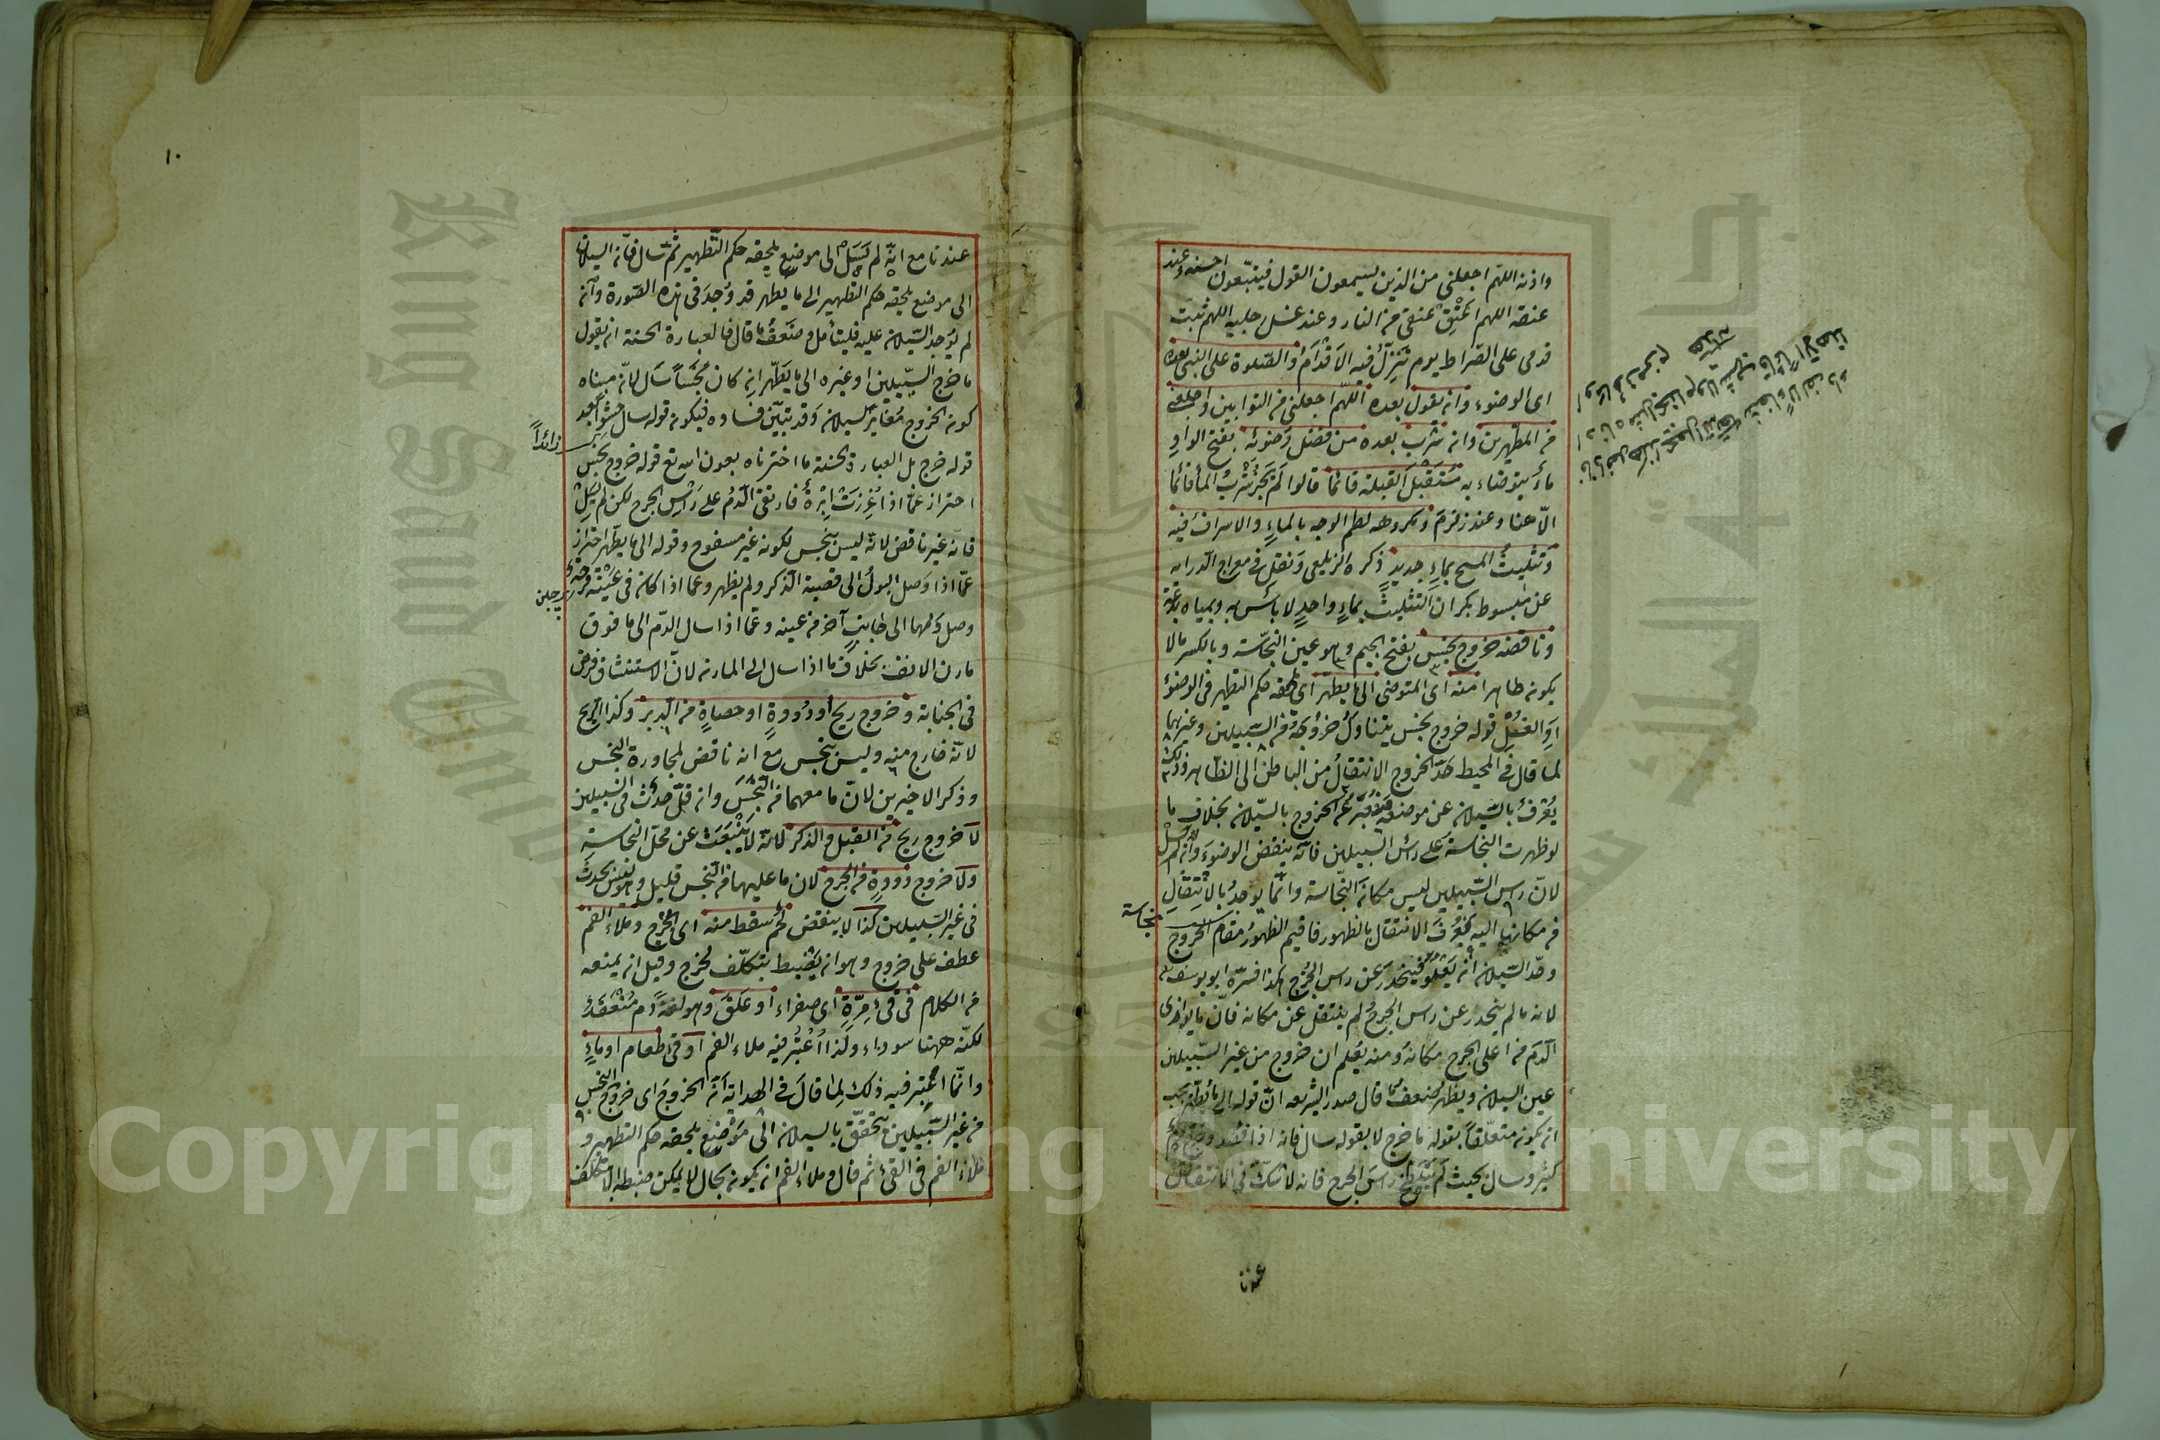 واذنه اللهم اجعلني من الذين يستمعون القول فيتبعون احسنه وعند
عنقه اللهم اعتق عنقي من النار وعند غسل رجليه اللهم ثبت
قدمي على الصراط يوم تزل فيه الاقدام والصلوة على النبي بعده
اى الوضوء وان يقول بعده اللهم اجعلني من التوابين واجعلني
من المطهرين وان شرب بعده من فضل وضوئه بفتح الواو
ماء يتوضاء به مستقبل القبلة قائما قالوا لم يجز شرب الماء قائما
الا هنا وعند زمزم ومكروهه لطم الوجه بالماء والاسراف فيه
وتثليث المسح بماء جديد ذكره الزيلعي ونقل في معراج الدراية
عن مبسوط بكر ان التثليث بماء واحد لا بأس به وبمياه بدعة
وناقضه خروج نجس بفتح الجيم وهو عين النجاسة وبالكسر مالا
يكون طاهرا منه اى المتوضى الى ما يطهر اى يلحقه حكم التطهير فى الوضوء
او الغسل قوله خروج نجس يتناول خروجه من السبيلين وغيرهما
لما قال في المحيط حد الخروج الانتقال من الباطن الى الظاهر وذلك
يعرف بالسيلان عن موضعه فيعبر عن الخروج بالسيلان بخلاف ما
لو ظهرت النجاسة على رأس السبيلين فانه ينقض الوضوء وان لم يسل
لان رأس السبيلين ليس مكان النجاسة وانما يوجد بالانتقال
من مكانها اليه فيعرف الانتقال بالظهور فاقيم الظهور مقام الخروج
نجاسة
وحد السيلان أنه يعلو فينحدر عن راس الجرح هكذا فسره ابو يوسف
لانه ما لم ينحدر عن راس الجرح لم ينتقل عن مكانه فان ما يوازى
الدم من اعلى الجرح مكانه ومنه يعلم ان خروج من غير السبيلين
عين السيلان ويظهر ضعف ما قال صدر الشريعه ان قوله الى ما يطهر يجب
ان يكون متعلقا بقوله ما خرج لا بقوله سال فانه اذا فصد وخرج دم
كثير وسال بحيث لم يتلطخ رأس الجرح فانه لا شك في الانتقاض
عندنا
١٠
عندنا مع انه لم يسل الى موضع يلحقه حكم التطهير ثم سال فانه السيلان
الى موضع يلحقه حكم التطهير الى ما يطهر قد وجد في هذه الصورة وانه
لم يوجد السيلان عليه فليتأمل وضعف ما قال فالعبارة الحسنة ان يقول
ما خرج السبيلين او غيره الى ما يطهر ان كان نجسا سال لانه مبناه
كون الخروج مغاير السيلان وقد تبين فساده فيكون قوله سال حشوا بعد
زائدا
قوله خرج بل العبارة الحسنة ما اخترناه بعون الله تع قوله خروج نجس
احتراز عما اذا غرزت ابرة فارتقى الدم على رأس الجرح لكن لم يسل
فانه غير ناقض لانه ليس بنجس لكونه غير مسفوح وقوله الى ما يطهر احتراز
عما اذا وصل البول الى قصبة الذكر ولم يظهر وعما اذا كان في عينه قرحة
وصل دمها الى جانب آخر من عينه وعما اذا سال الدم الى ما فوق
مارن الانف بخلاف ما اذا سال الى المارن لان الاستنشاق فرض
في الجنابة وخروج ريح او دودة او حصاة من الدبر وكذا الريح
لانه خارج منه وليس بنجس مع انه ناقض لمجاورة النجس
وذكر الاخيرين لان ما معهما من النجس وان قل حدث في السبيلين
لا خروج ريح من القبل والذكر لانه لا ينبعث عن محل النجاسة
ولا خروج دودة من الجرح لان ما عليها من النجس قليل وهو ليس بحدث
في غير السبيلين كذا لا ينقض لحم سقط منه اى الجرح وملاء الفم
عطف على خروج وهو ان يضبط بتكلف لخرج وقيل ان يمنعه
من الكلام في قئ مرة اى صفراء او علق وهو لغة دم منعقد
لكنه ههنا سوداء ولذا اعتبر فيه ملاء الفم او قئ طعام او ماء
وانما اعتبر فيه ذلك لما قال في الهداية أن الخروج اى خروج النجس
من غير السبيلين يتحقق بالسيلان الى موضع يلحقه حكم التطهير و
ملاء الفم في القئ ثم قال وملاء الفم ان يكون بحال لا يمكن ضبطه الا بتكلف